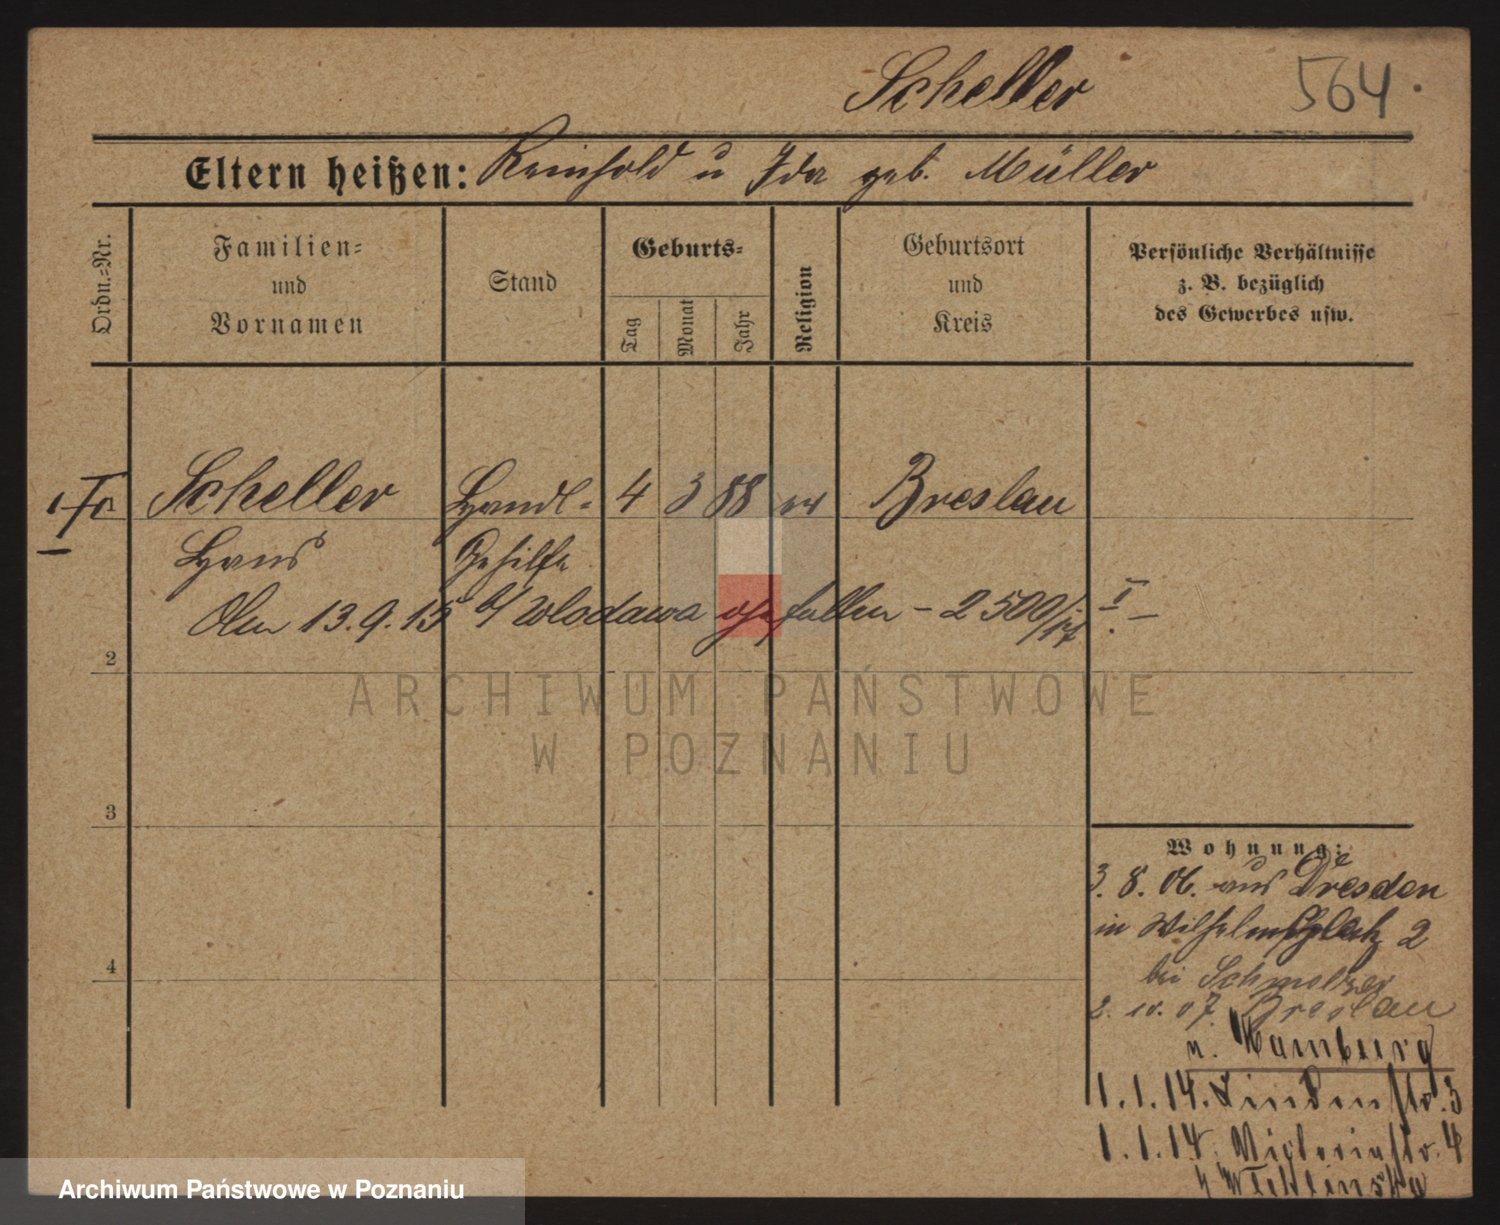 Scheller 564.
Eltern heißen: Reinhold u Ida geb. Müller
Ordn.-Nr.
Familien-
und
Vornamen
Stand
Geburts-
Tag
Monat
Jahr
Religion
Geburtsort
und
Kreis
Persönliche Verhältnisse
z. B. bezüglich
des Gewerbes usw.
Scheller Handl- 4 3 88 ev Breslau
Hans Gehilfe
Am 13.9.15 b/ Wlodawa gefallen - 2500/
2
3
4
Wohnung:
3. 8. 06. aus Dresden
in Wilhelmsplatz 2
bei Schmelzer
2. 10. 07. Breslau
n. Hamburg
1.1.14. Lindenstr. 3
1.1.14. Victoriastr. 4
ARCHIWUM PAŃSTWOWE
W POZNANIU
Archiwum Państwowe w Poznaniu